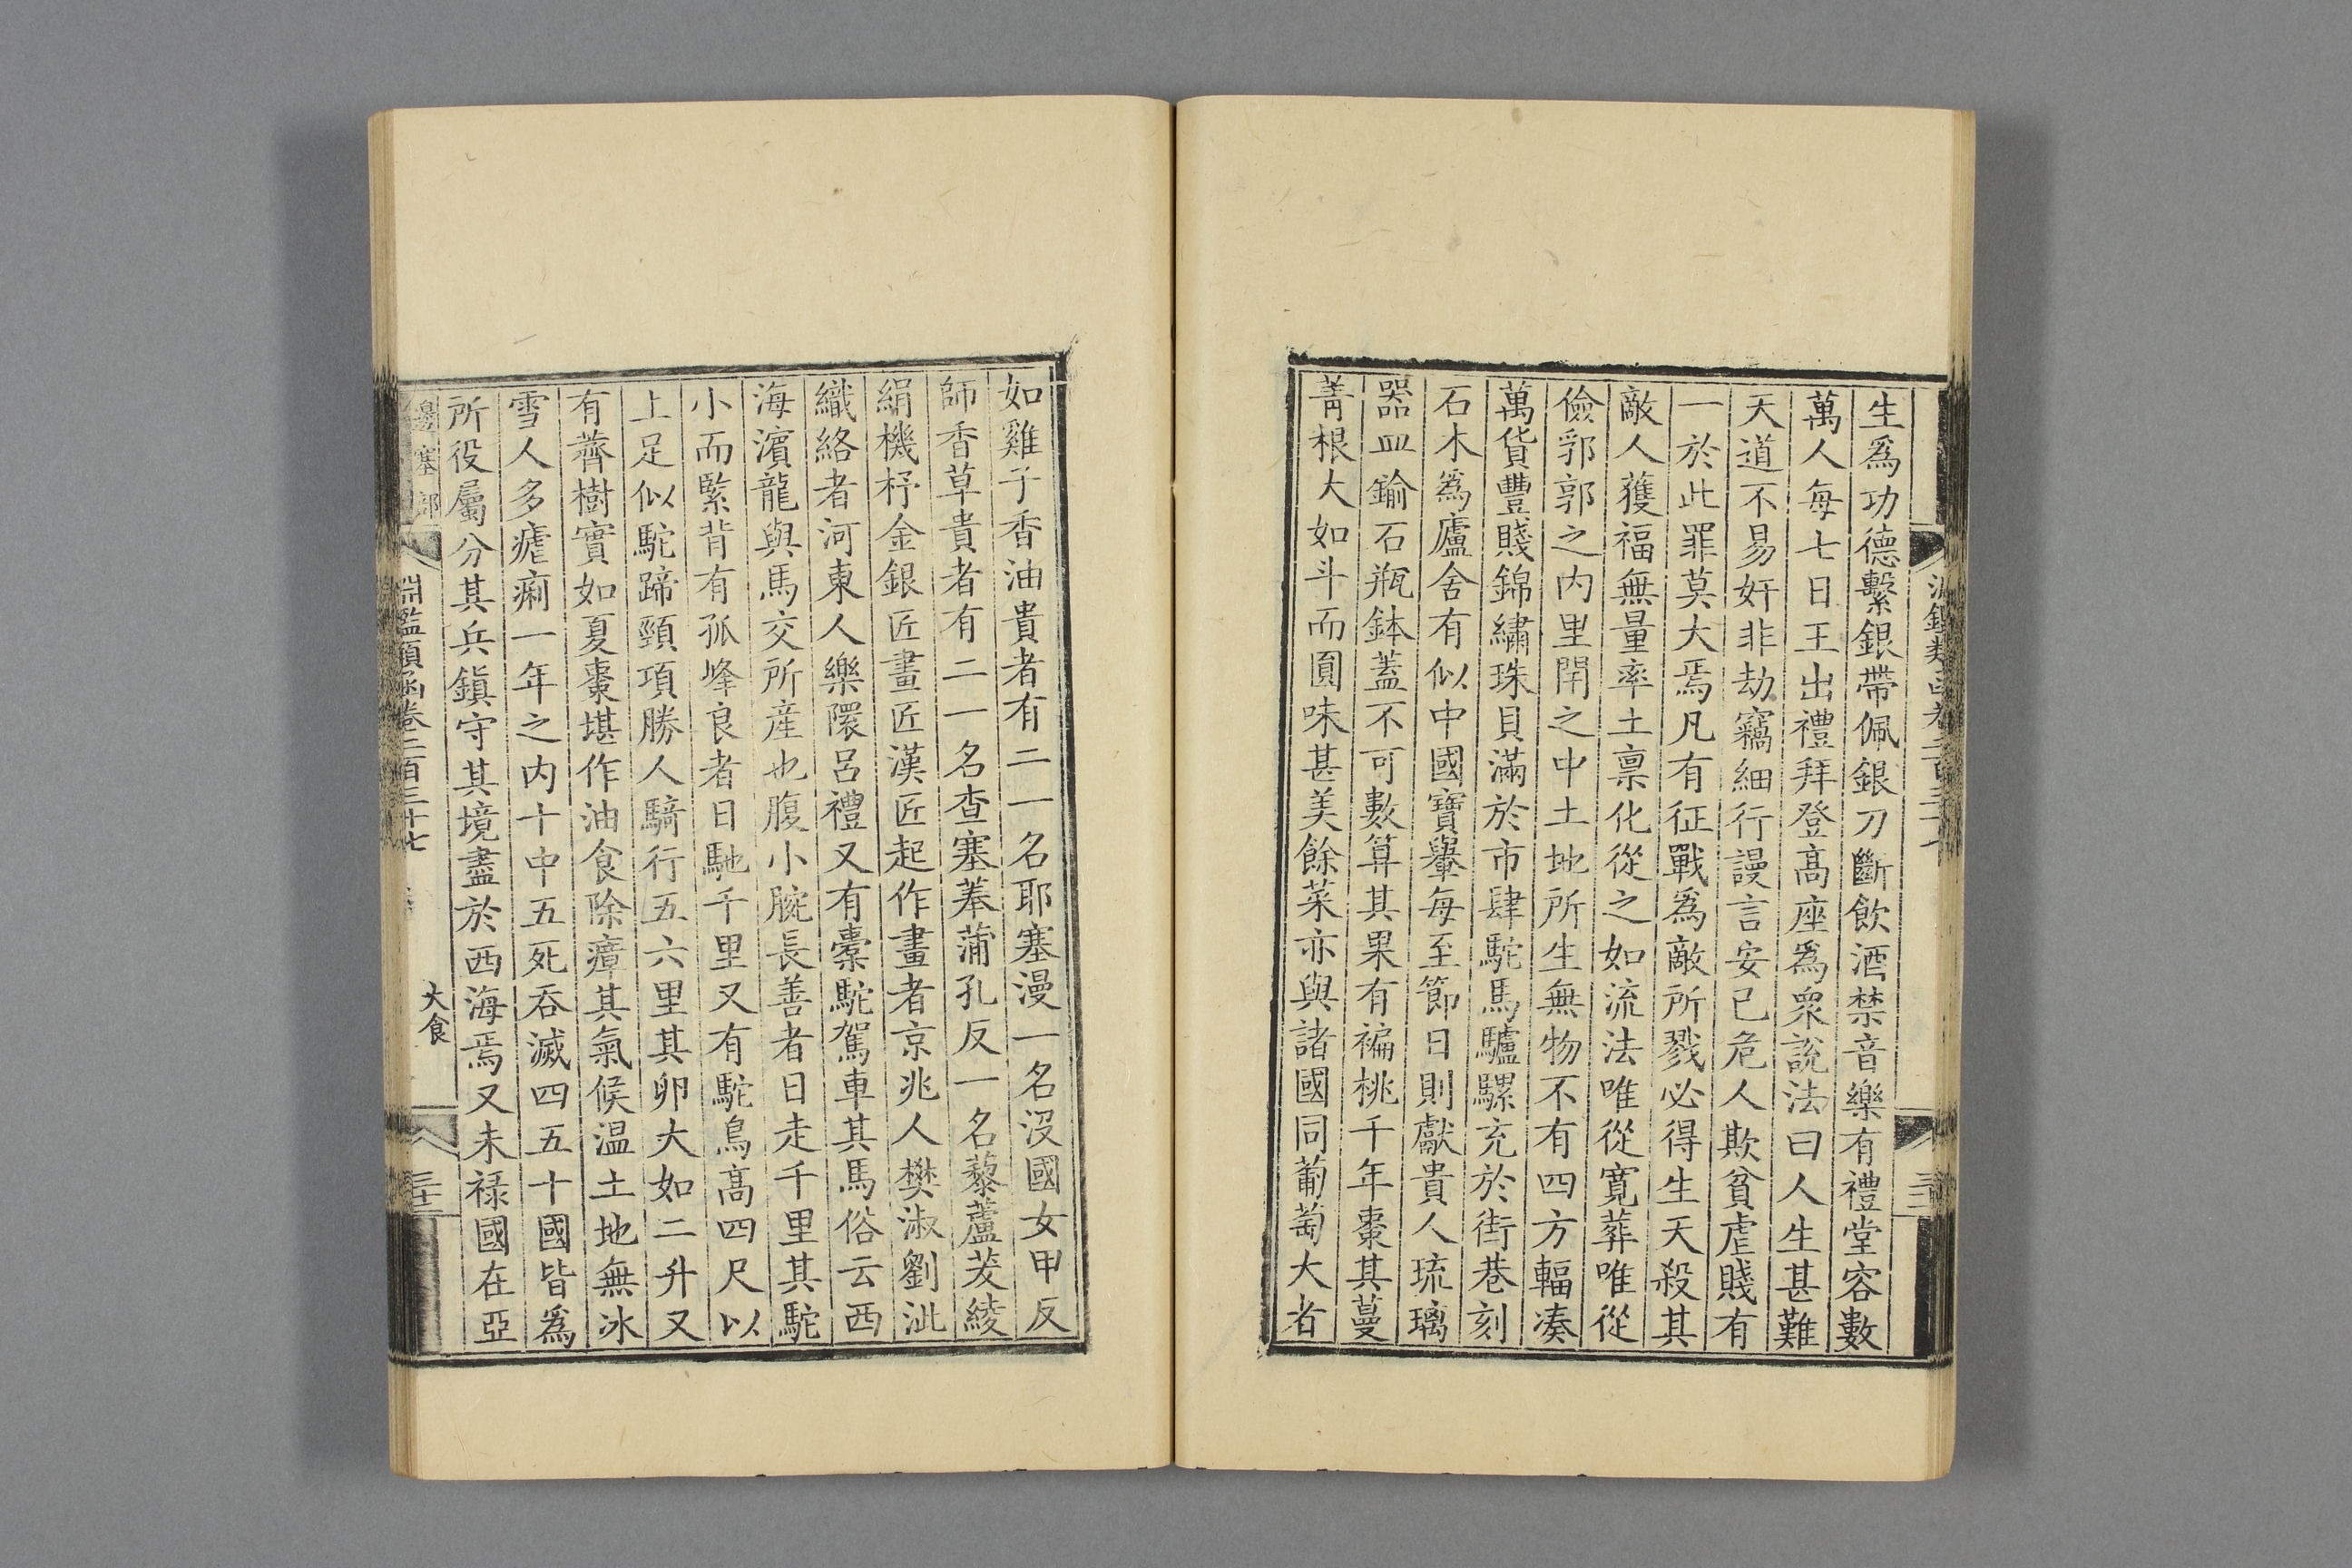 生爲功德繫銀帶佩銀刀斷飲酒禁音樂有禮堂容數
萬人每七日王出禮拜登高座爲衆說法曰人生甚難
天道不易奸非劫竊細行謾言安已危人欺貧虐賤有
一於此罪莫大焉凡有征戰爲敵所戮必得生天殺其
敵人獲福無量率土禀化從之如流法唯從寬葬唯從
儉郛郭之内里閈之中土地所生無物不有四方輻凑
萬貨豐賤錦繡珠貝滿於市肆駝馬驢騾充於街巷刻
石木爲廬舍有似中國寶轝每至節日則獻貴人琉璃
器皿鍮石瓶鉢蓋不可數算其果有褊桃千年棗其蔓
菁根大如斗而圓味甚美餘菜亦與諸國同葡萄大者
如雞子香油貴者有二一名耶塞漫一名沒國女甲反
師香草貴者有二一名查塞菶蒲孔反一名藜蘆茇綾
絹機杼金銀匠畫匠漢匠起作畫者京兆人樊淑劉泚
織絡者河東人樂隈呂禮又有橐駝駕車其馬俗云西
海濵龍與馬交所産也腹小腕長善者日走千里其駝
小而緊背有孤峰良者日馳千里又有駝鳥高四尺以
上足似駝蹄頸項勝人騎行五六里其卵大如二升又
有薺樹實如夏棗堪作油食除瘴其氣候温土地無冰
雪人多瘧痢一年之内十中五死吞滅四五十國皆爲
所役屬分其兵鎮守其境盡於西海焉又未禄國在亞
邊塞部
淵鑑類函卷二百三十七
大食